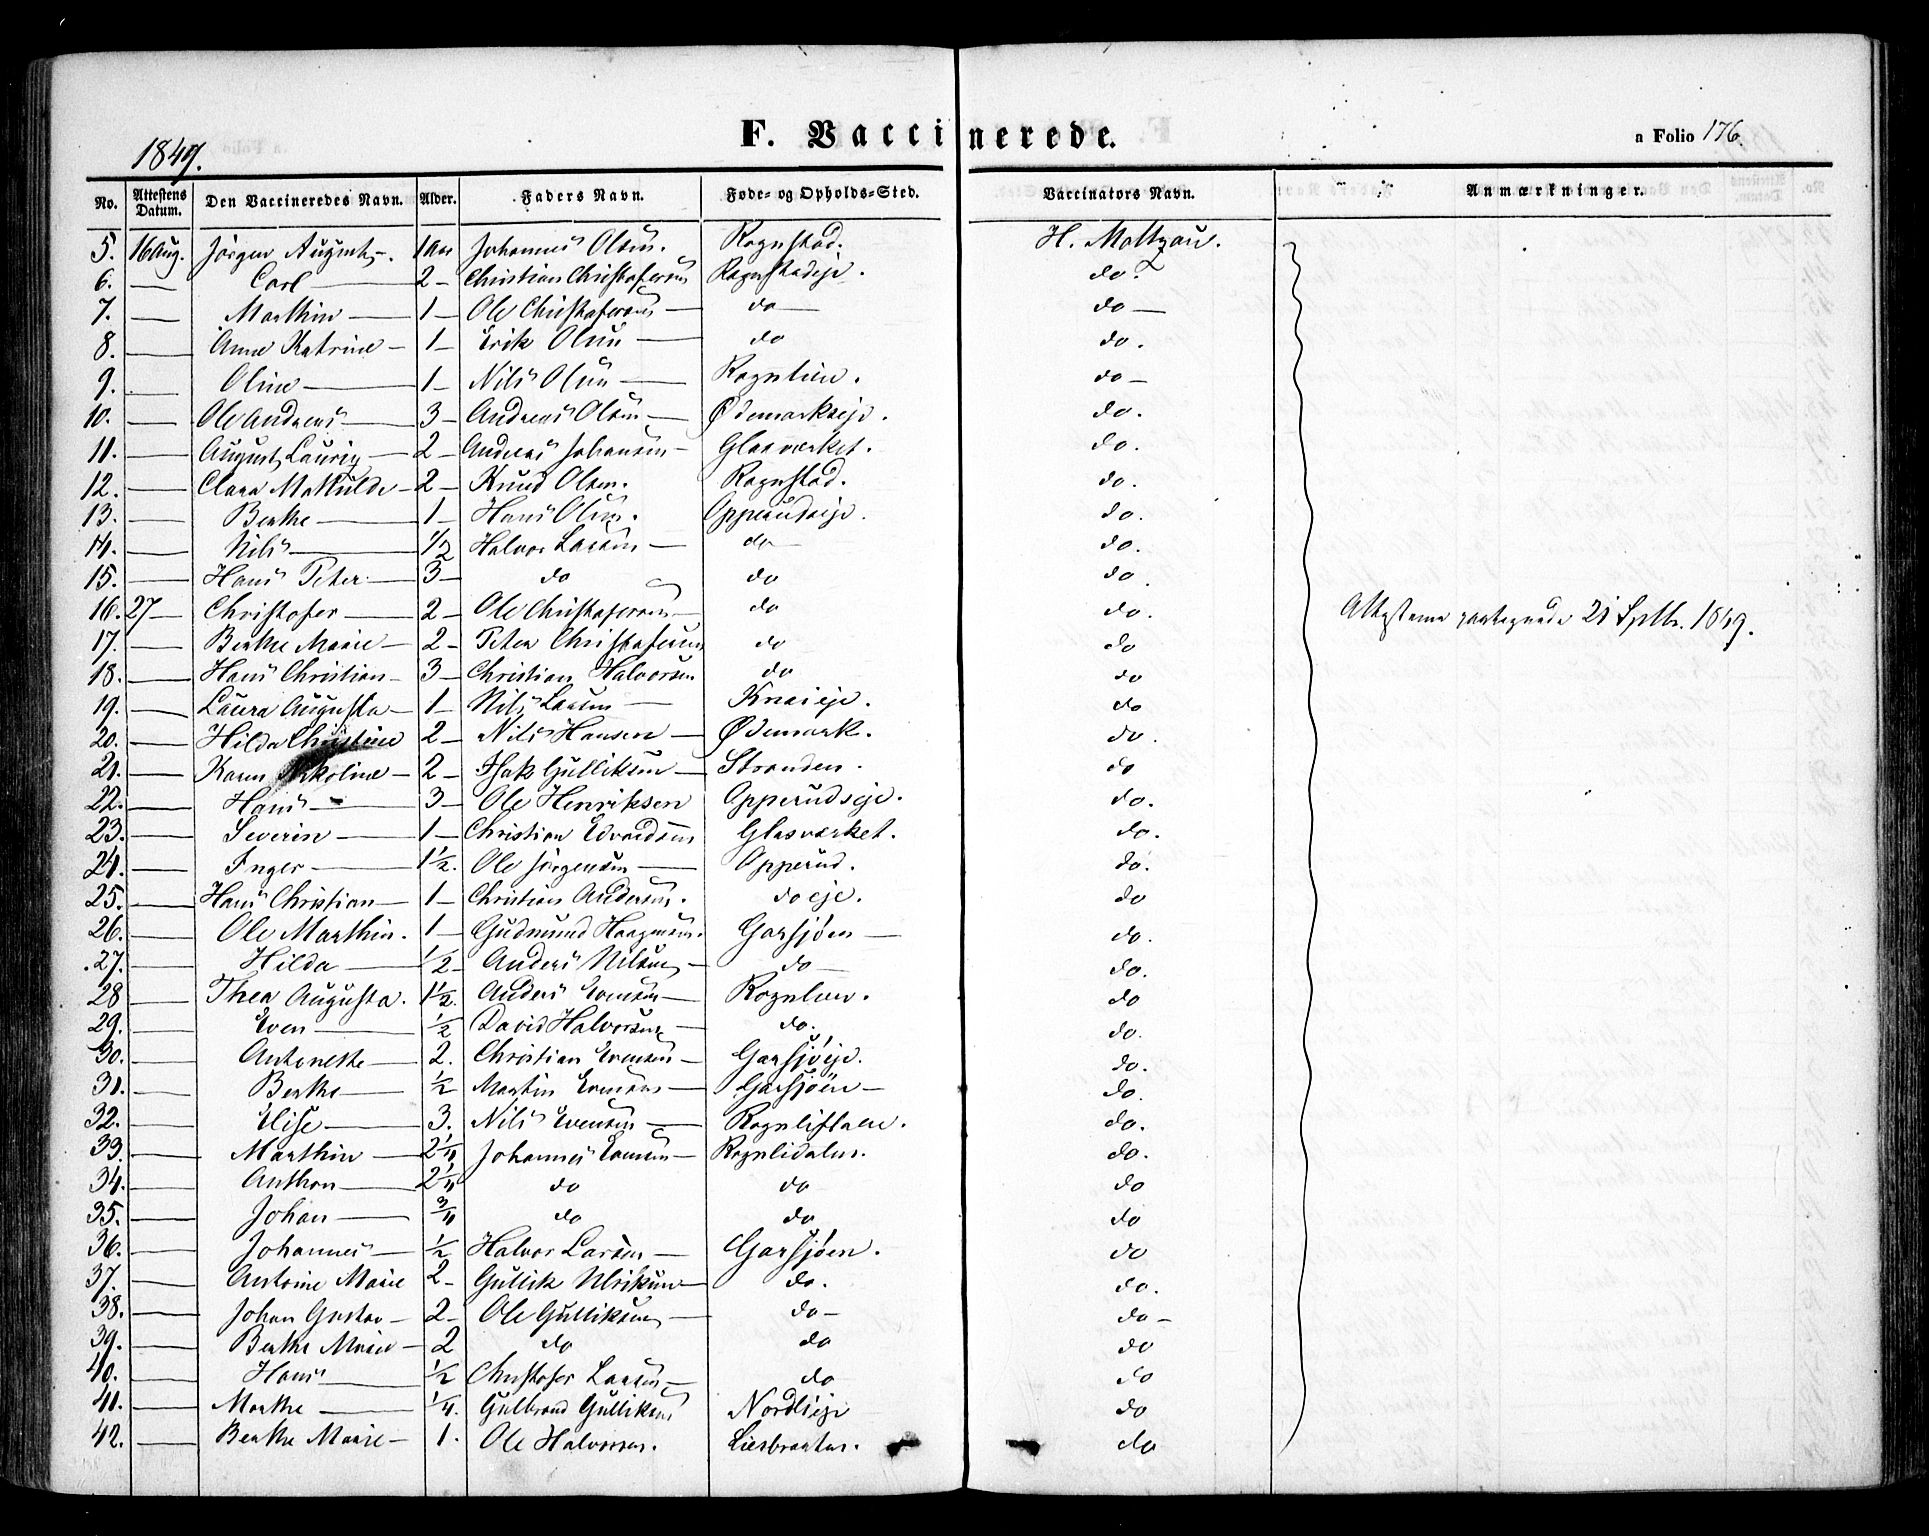 F. Vaccinerede.
1849.
a Folio 176.
No. Attestens Datum. Den Vaccineredes Navn. Alder. Faders Navn. Føde- og Opholds-Sted. Vaccinators Navn. Anmærkninger.
5. 16 Aug. Jörgen August 1 Aar Johannes Olsen. Rognstad. H. Moltzau.
6. — Carl — 2 — Christian Christofersen Rognstadeje. do.
7. — Marthin — 1 — Ole Christofersen — do — do —
8. — Anne Katrine — 1 — Erik Olsen — do do.
9. — Oline — 1 — Nils Olsen — Rognlien. do —
10. — Ole Andreas — 3 — Andreas Olsen — Ødemarkseje. do.
11. — August Lauriz — 2 — Andreas Johansen — Glasværket. do.
12. — Clara Mathilde — 2 — Knud Olsen. Rognstad. do.
13. — Berthe — 1 — Hans Olsen. Opperudseje. do.
14. — Nils — 1/2 Halvor Larsen — do — do.
15. — Hans Peter — 3 — do do do.
16. 27 — Christofer — 2 — Ole Christofersen — do do. Attesterne paategnede 21 Septbr. 1849.
17. — Berthe Marie — 2 — Peter Christofersen do do
18. — Hans Christian — 3 — Christian Halvorsen do do
19. — Laura Augusta — 1 — Nils Larsen — Knaieje. do
20. — Hilda Christine 2 — Nils Hansen — Ødemark. do.
21. — Karen Nikoline — 2 — Isak Gulliksen — Stranden. do
22. — Hans — 3 — Ole Henriksen Opperudseje. do.
23. — Severin — 1 — Christian Edvardsen Glasværket. do.
24. — Inger — 1 1/2. Ole Jörgensen — Opperud. do.
25. — Hans Christian — 1 — Christian Andersen. do eje. do
26. — Ole Marthin. 1 — Gudmund Haagensen. Garsjøen — do.
27. — Hilda — 1/2 — Anders Nilsen — do — do.
28 — Thea Augusta. 1 1/2. Anders Evensen — Rognlien. do
29. — Even — 1/2 David Halvorsen — do. do.
30. — Antonethe — 2. Christian Evensen — Garsjøeje. do.
31. — Berthe — 1/2 Martin Evensen — Garsjöen — do.
32. — Elise — 3. Nils Evensen — Rogneliflaen. do.
33. — Marthin — 2 1/4 Johannes Evensen — Rognlidalen. do.
34. — Anthon — 2 1/4 do do do
35. — Johan — 3/4 do do do
36. — Johannes — 1/2 Halvor Larsen — Garsjøen. do
37. — Antoine Marie 2 — Gullik Ulriksen — do. do.
38. — Johan Gustav — 2 — Ole Gulliksen — do — do —
39. — Berthe Marie — 2 do do do
40. — Hans — 1/2 Christofer Larsen — do do
41. — Marthe — 1/4. Gulbrand Gulliksen Nordlieje do
42. — Berthe Marie — 1. Ole Halvorsen. Liesbraaten. do